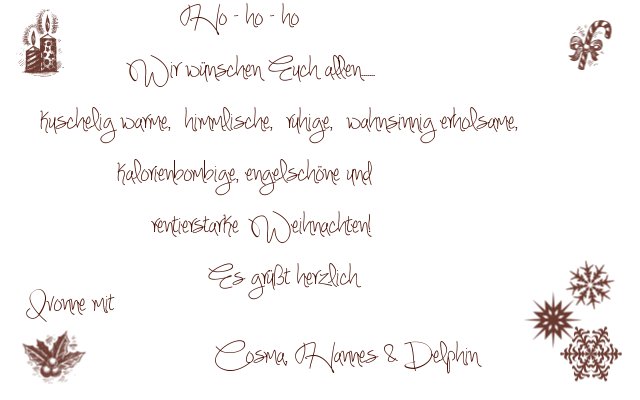 Ho - ho - ho
Wir wünschen Euch allen.....
kuschelig warme, himmlische, ruhige, wahnsinnig erholsame,
kalorienbombige, engelschöne und
rentierstarke Weihnachten!
Es grüßt herzlich
Yvonne mit
Cosma, Hannes & Delphin